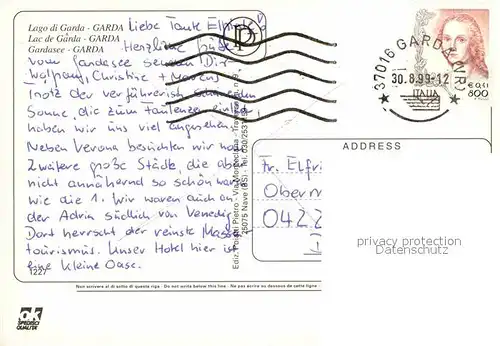 Lago di Garda - GARDA
Lac de Garda - GARDA
Gardasee - GARDA
Liebe Tante
Herzliche Grüße
vom Gardasee senden Dir
Wolfgang, Christine + Marcus
Trotz der verführerisch scheinenden
Sonne, die zum Faulenzen einlädt
haben wir uns viel angesehen.
Neben Verona besichten wir noch
2 weitere große Städte, die aber
nicht annähernd so schön waren
wie die 1. Wir waren auch an
der Adria südlich von Venedig.
Dort herrscht der reinste Massen
tourismus. Unser Hotel hier ist
eine kleine Oase.
1227
AK
SPEDISCI
QUALITÀ
Ediz. Postal Pietro - Via
25075 Nave (BS) - Tel. 030/2531
P
37016 GARDA (VR)
30.8.99-12
ITALIA
€ 0,41
800
ADDRESS
Fr. Elfri
Obern
042
privacy protection
Datenschutz
Non scrivere al di sotto di questa riga - Do not write below this line - Ne pas écrire au dessous de cette ligne